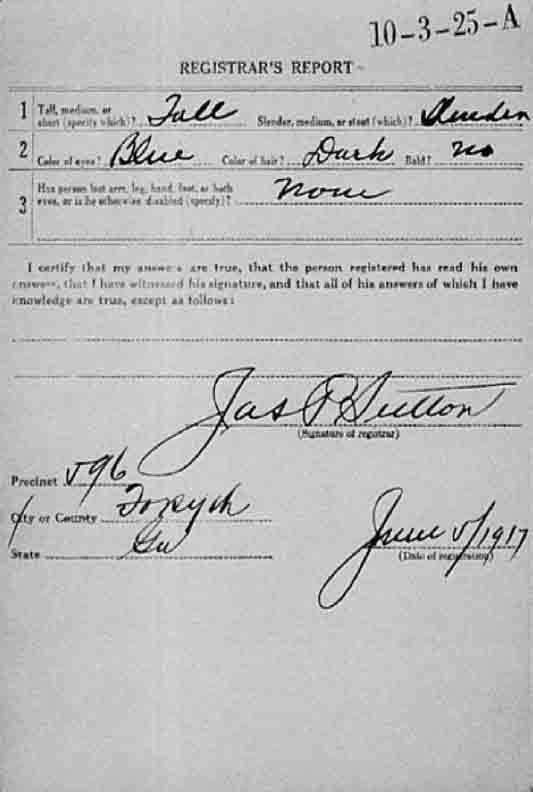 10-3-25-A
REGISTRAR'S REPORT
1 Tall, medium, or short (specify which)? Tall Slender, medium, or stout (which)? Slender
2 Color of eyes? Blue Color of hair? Dark Bald? no
3 Has person lost arm, leg, hand, foot, or both
eyes, or is he otherwise disabled (specify)? None
I certify that my answers are true, that the person registered has read his own
answers, that I have witnessed his signature, and that all of his answers of which I have
knowledge are true, except as follows:
Jas P Sutton
(Signature of registrar)
Precinct 596
City or County Forsyth
State Ga
June 5/1917
(Date of registration)